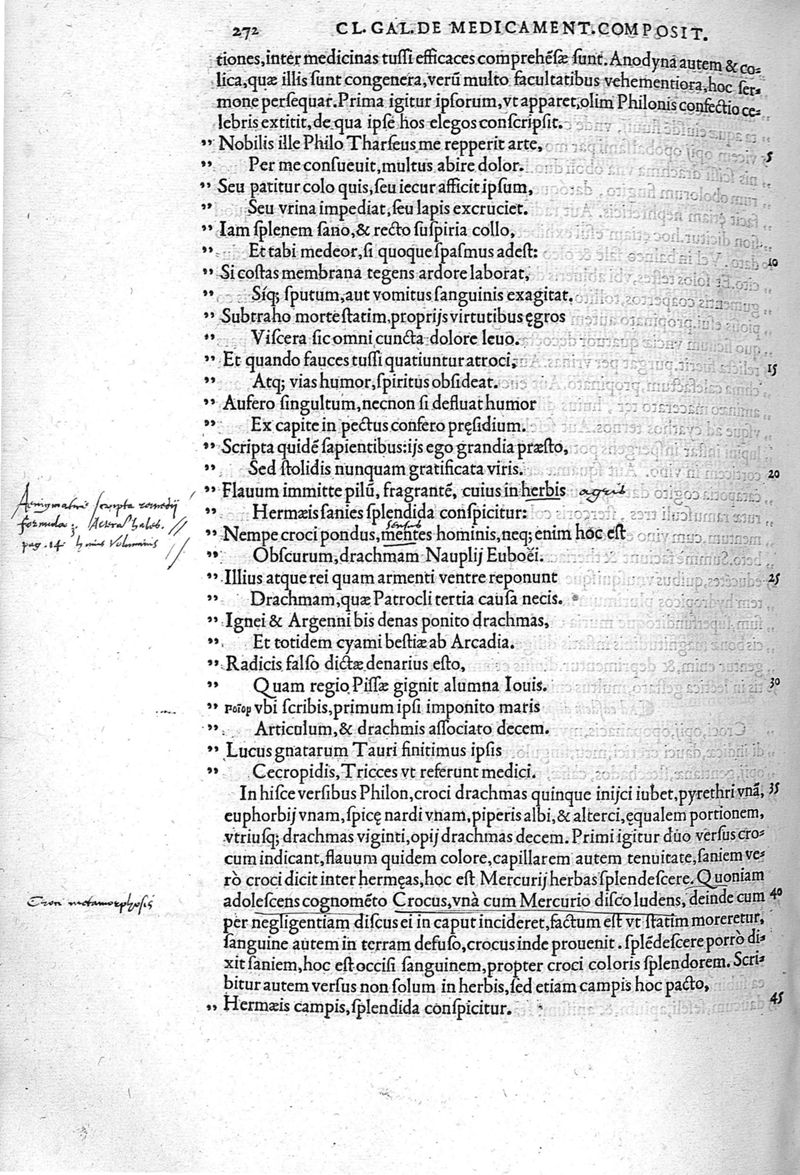 272 CL. GAL. DE MEDICAMENT. COMPOSIT.
tiones, inter medicinas tussi efficaces comprehẽsæ sunt. Anodyna autem & co-
lica, quæ illis sunt congenera, verũ multo facultatibus vehementiora, hoc ser-
mone persequar. Prima igitur ipsorum, vt apparet, olim Philonis confectio ce-
lebris extitit, de qua ipse hos elegos conscripsit.
” Nobilis ille Philo Tharseus me repperit arte, 5
” Per me consueuit, multus abire dolor.
” Seu patitur colo quis, seu iecur afficit ipsum,
” Seu vrina impediat, seu lapis excruciet.
” Iam splenem sano, & recto suspiria collo,
” Et tabi medeor, si quoque spasmus adest: 10
” Si costas membrana tegens ardore laborat,
” Síq; sputum, aut vomitus sanguinis exagitat.
” Subtraho morte statim, proprijs virtutibus ęgros
” Viscera sic omni cuncta dolore leuo.
” Et quando fauces tussi quatiuntur atroci, 15
” Atq; vias humor, spiritus obsideat.
” Aufero singultum, necnon si defluat humor
” Ex capite in pectus confero pręsidium.
” Scripta quidẽ sapientibus: ijs ego grandia præsto,
” Sed stolidis nunquam gratificata viris. 20
” Flauum immitte pilũ, fragrantẽ, cuius in herbis agris
” Hermæis sanies splendida conspicitur:
” Nempe croci pondus, mentes hominis, neq; enim hoc est
sensus
” Obscurum, drachmam Nauplij Euboëi.
” Illius atque rei quam armenti ventre reponunt 25
” Drachmam, quæ Patrocli tertia causa necis.
” Ignei & Argenni bis denas ponito drachmas,
” Et totidem cyami bestiæ ab Arcadia.
” Radicis falso dictæ denarius esto,
” Quam regio Pissæ gignit alumna Iouis. 30
” vbi scribis, primum ipsi imponito maris
” Articulum, & drachmis associato decem.
” Lucus gnatarum Tauri finitimus ipsis
” Cecropidis, Tricces vt referunt medici.
In hisce versibus Philon, croci drachmas quinque inijci iubet, pyrethri vnã, 35
euphorbij vnam, spicę nardi vnam, piperis albi, & alterci, ęqualem portionem,
vtriusq; drachmas viginti, opij drachmas decem. Primi igitur duo versus cro-
cum indicant, flauum quidem colore, capillarem autem tenuitate, saniem ve-
rò croci dicit inter hermęas, hoc est Mercurij herbas splendescere. Quoniam
adolescens cognomẽto Crocus, vnà cum Mercurio disco ludens, deinde cum 40
per negligentiam discus ei in caput incideret, factum est vt statim moreretur,
sanguine autem in terram defuso, crocus inde prouenit. splẽdescere porrò di-
xit saniem, hoc est occisi sanguinem, propter croci coloris splendorem. Scri-
bitur autem versus non solum in herbis, sed etiam campis hoc pacto,
” Hermæis campis, splendida conspicitur. 45
Aenigmatice scripta remedij
formula
pag. 14 huius Voluminis
Croci metamorphosis